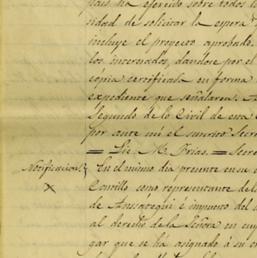 país ha ejercido sobre todos l
sidad de solicitar la espera
incluye el proyecto aprobado.
los interesados, dandose por el
cópia certificada en forma
expediente que señalaren. A
Segundo de lo Civil de esta C
por ante mí el suscrito Secre
Lic. M. Frias. — Secre
Notificacion. En el mismo dia presente en su
como representante del
de é impuesto del
al derecho de la Señora en
gar que se ha asignado á su